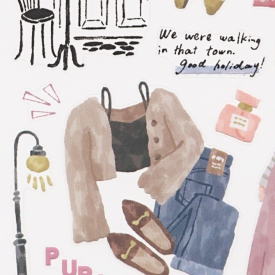 We were walking
in that town.
good holiday!